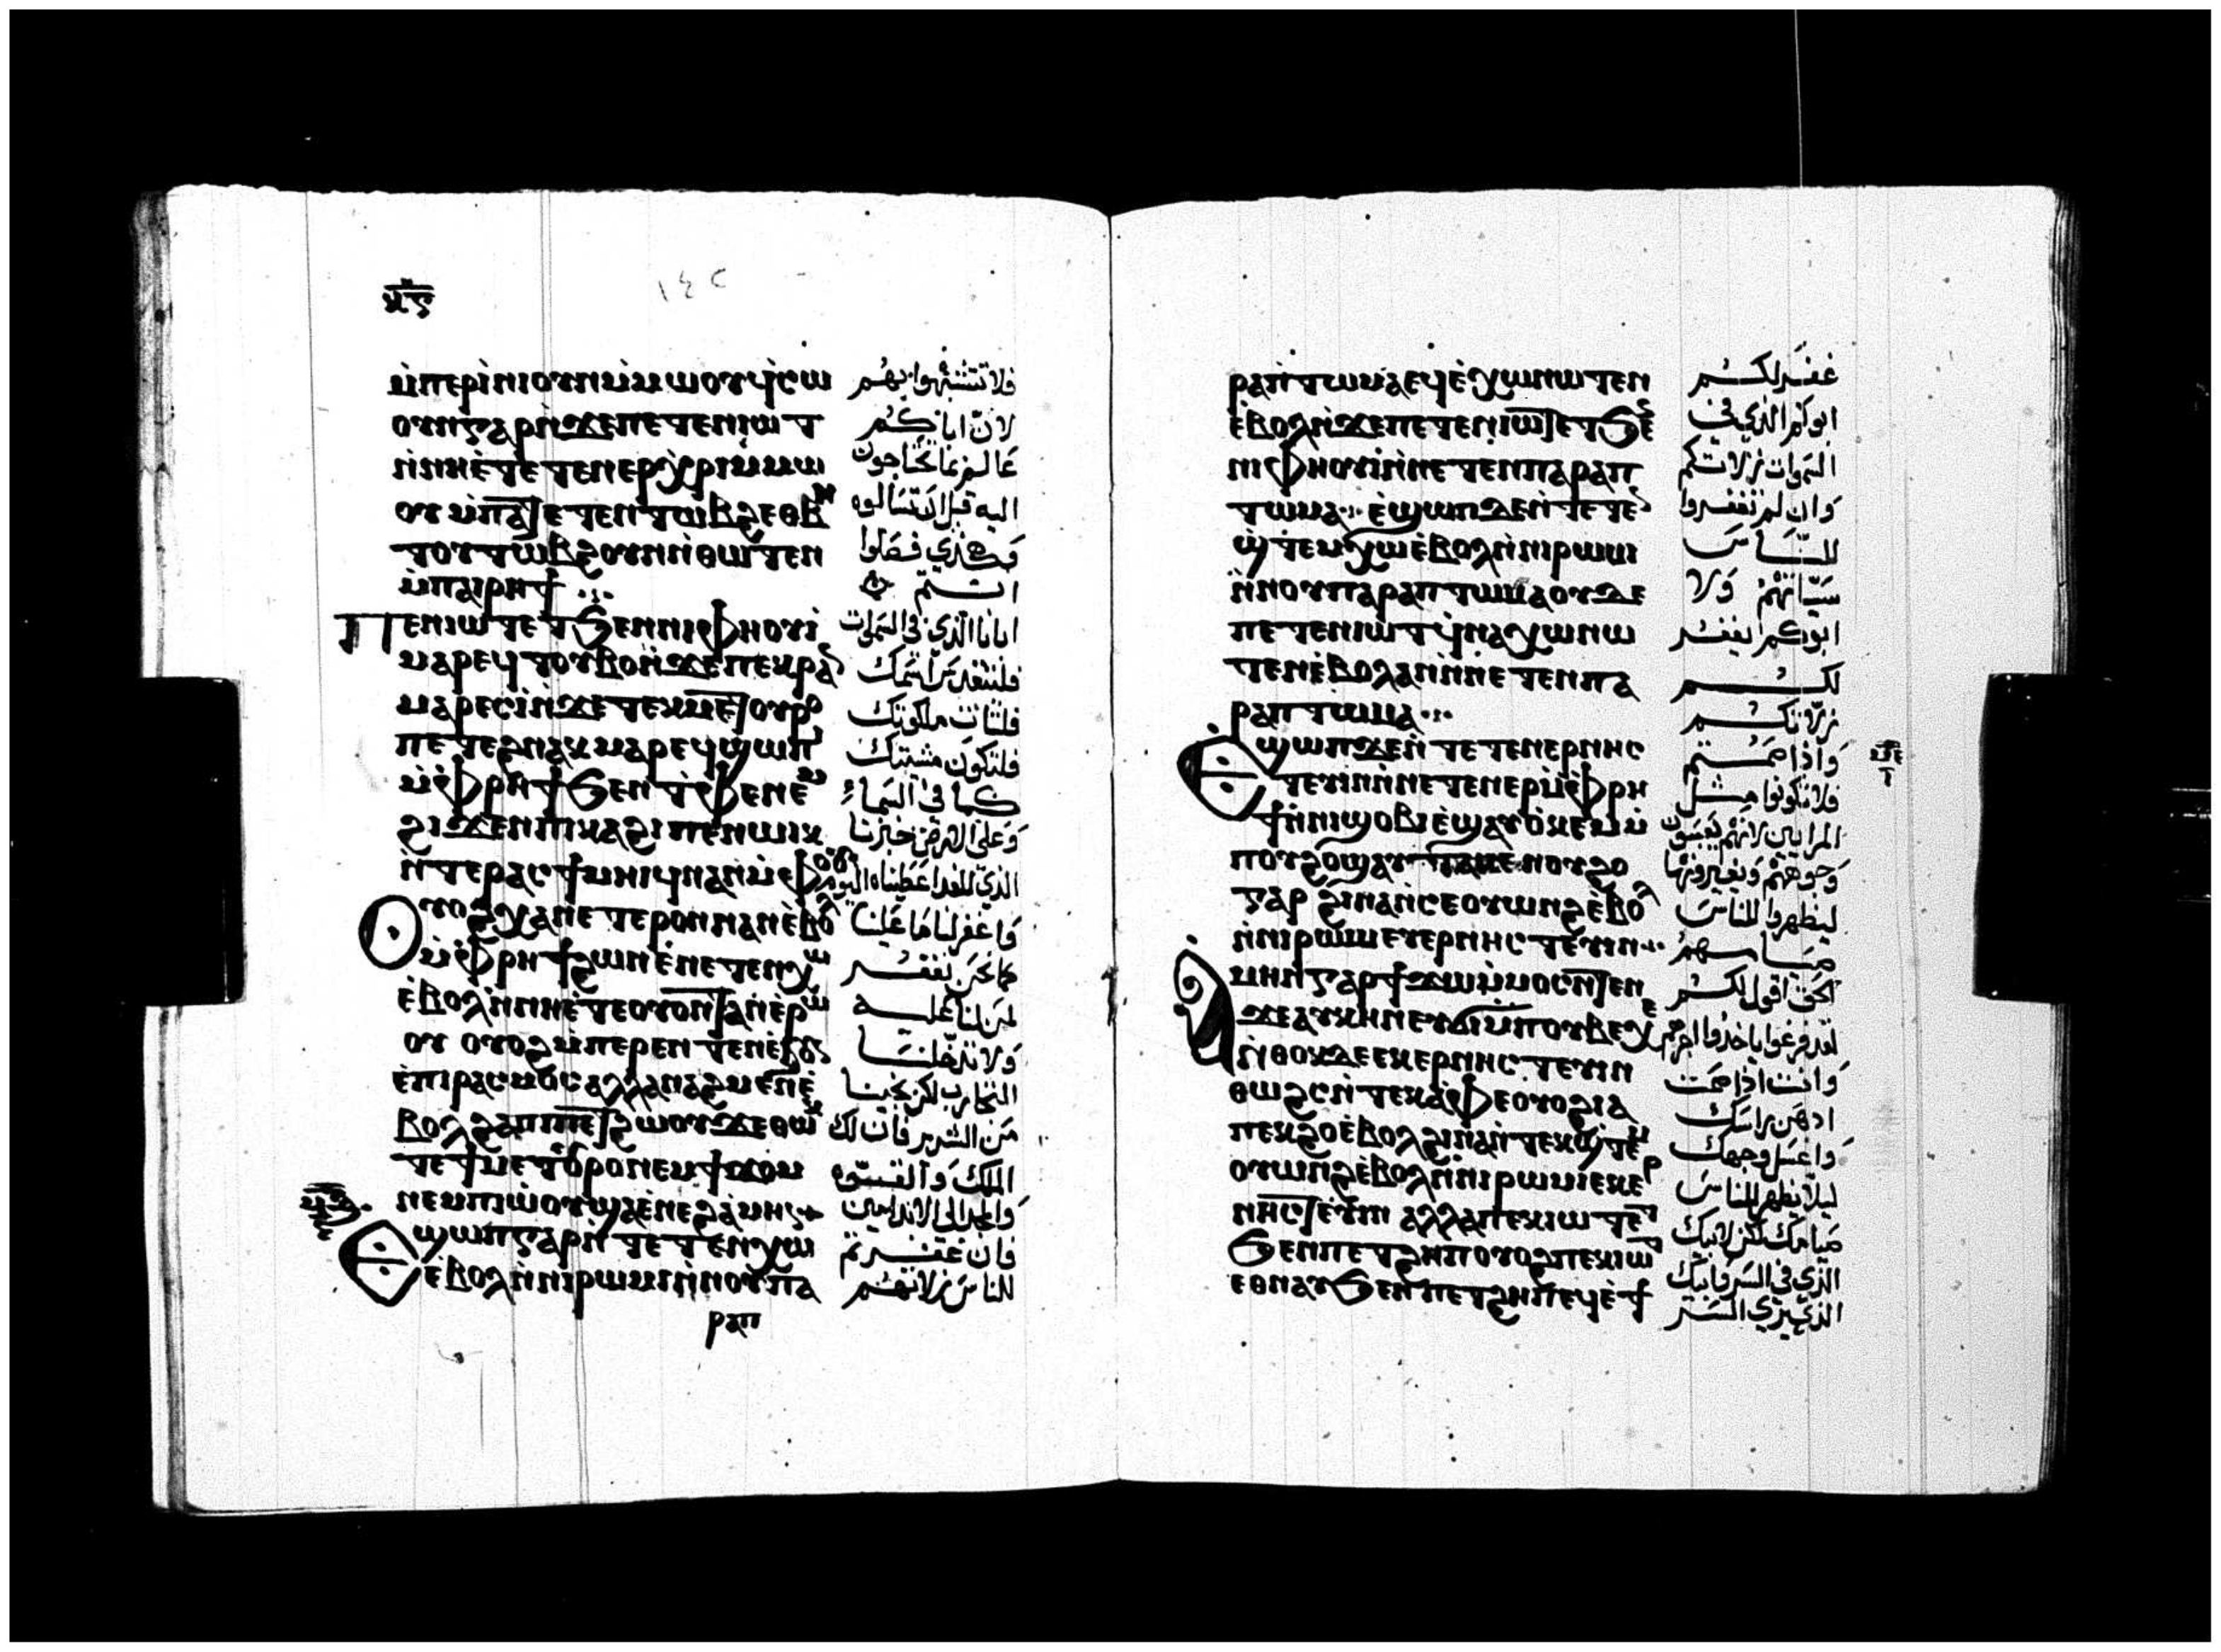 ⲙ̀ⲡⲉⲣⲓ̀ⲛⲓ ⲟⲩⲛ ⲙ̀ⲙⲱⲟⲩ ϥ̀ⲥⲱ
ⲟⲩⲛ ⲅⲁⲣ ⲛ̀ϫⲉ ⲡⲉⲧⲉⲛⲓⲱⲧ
ⲛ̀ⲛⲏⲉ̀ⲧⲉⲧⲉⲛⲉⲣⲭ̀ⲣⲓⲁ ⲙ̀ⲙⲱ
ⲟⲩ ⲙ̀ⲡⲁⲧⲉⲧⲉⲛⲧⲱⲃϩ ⲉⲑⲃⲏ
ⲧⲟⲩ ⲧⲱⲃϩ ⲟⲩⲛ ⲛ̀ⲑⲱⲧⲉⲛ
ⲙ̀ⲡⲁⲓⲣⲏϯ
ⲡⲉⲛⲓⲱⲧ ⲉⲧϧⲉⲛ ⲛⲓⲫⲏⲟⲩⲓ̀
ⲙⲁⲣⲉϥⲧⲟⲩⲃⲟ ⲛ̀ϫⲉ ⲡⲉⲕⲣⲁⲛ
ⲙⲁⲣⲉⲥⲓ̀ ⲛ̀ϫⲉ ⲧⲉⲕⲙⲉⲧⲟⲩⲣⲟ
ⲡⲉⲧⲉϩⲛⲁⲕ ⲙⲁⲣⲉϥϣⲱⲡⲓ
ⲙ̀ⲫⲣⲏϯ ϧⲉⲛ ⲧ̀ⲫⲉ ⲛⲉⲙ
ϩⲓϫⲉⲛ ⲡⲓⲕⲁϩⲓ ⲡⲉⲛⲱⲓⲕ
ⲛ̀ⲧⲉ ⲣⲁⲥϯ ⲙⲏⲓϥ ⲛⲁⲛ ⲙ̀ⲫⲟⲟⲩ
ⲟⲩⲟϩ ⲭⲁ ⲛⲉⲧⲉⲣⲟⲛ ⲛⲁⲛ ⲉ̀ⲃⲟⲗ
ⲙ̀ⲫⲣⲏϯ ϩⲱⲛ ⲉ̀ⲛⲉⲧⲉⲛⲭⲱ
ⲉ̀ⲃⲟⲗ ⲛ̀ⲛⲏⲉ̀ⲧⲉ ⲟⲩⲟⲛⲧⲁⲛ ⲉ̀ⲣⲱ
ⲟⲩ ⲟⲩⲟϩ ⲙ̀ⲡⲉⲣⲉⲛⲧⲉⲛ ⲉ̀ϧⲟⲩⲛ
ⲉ̀ⲡⲓⲣⲁⲥⲙⲟⲥ ⲁⲗⲗⲁ ⲛⲁϩⲙⲉⲛ ⲉ̀
ⲃⲟⲗ ϩⲁ ⲡⲓⲡⲉⲧϩⲱⲟⲩ ϫⲉ ⲑⲱⲕ
ⲧⲉ ϯⲙⲉⲧⲟⲩⲣⲟ ⲛⲉⲙ ϯϫⲟⲙ
ⲛⲉⲙ ⲡⲓⲱ̀ⲟⲩ ϣⲁ ⲉ̀ⲛⲉϩ ⲁ̀ⲙⲏⲛ
ⲉϣⲱⲡ ⲅⲁⲣ ⲛ̀ⲧⲉⲧⲉⲛⲭⲱ
ⲉⲃⲟⲗ ⲛ̀ⲛⲓⲣⲱⲙⲓ ⲛ̀ⲛⲟⲩⲡⲁ
ⲣⲁⲡ
فلا تتشبهوا بهم
لان اباكم
عالم بما تحتاجون
اليه قبل ان تسالوه
وهكذي فصلوا
انتم
ابانا الذي في السموات
فليتقدس اسمك
فلتات ملكوتك
فلتكون مشيتك
كما في السماء
وعلى الارض خبزنا
الذي للغد اعطيناه اليوم
واغفر لنا ما علينا
كما نحن نغفر
لمن لنا عليه
ولا تدخلنا
التجارب لكن نجينا
من الشرير فان لك
الملك والقوه
والمجد الي الابد امين
فان غفرتم
للناس زلاتهم
ⲣⲁⲡⲧⲱⲙⲁ ⲉϥⲉ̀ⲭⲱ ⲛⲱⲧⲉⲛ
ⲉ̀ⲃⲟⲗ ⲛ̀ϫⲉ ⲡⲉⲧⲉⲛⲓⲱⲧ ⲉⲧϧⲉⲛ
ⲛⲓⲫⲏⲟⲩⲓ̀ ⲛ̀ⲛⲉⲧⲉⲛⲡⲁⲣⲁⲡ
ⲧⲱⲙⲁ ⲉ̀ϣⲱⲡ ϫⲉ ⲛ̀ⲧⲉⲧⲉⲛ
ϣ̀ⲧⲉⲙⲭⲱ ⲉ̀ⲃⲟⲗ ⲛ̀ⲛⲓⲣⲱⲙⲓ
ⲛ̀ⲛⲟⲩⲡⲁⲣⲁⲡⲧⲱⲙⲁ ⲟⲩϫⲉ
ⲡⲉⲧⲉⲛⲓⲱⲧ ϥ̀ⲛⲁⲭⲱ ⲛⲱ
ⲧⲉⲛ ⲉ̀ⲃⲟⲗ ⲁⲛ ⲛ̀ⲛⲉⲧⲉⲛⲡⲁ
ⲣⲁⲡⲧⲱⲙⲁ
ⲉϣⲱⲡ ϫⲉ ⲛ̀ⲧⲉⲧⲉⲛⲉⲣⲛⲏⲥ
ⲧⲉⲩⲓⲛ ⲛ̀ⲛⲉⲧⲉⲛⲉⲣ ⲙ̀ⲫⲣⲏ
ϯ ⲛ̀ⲛⲓϣⲟⲃⲓ ⲉ̀ϣⲁⲩⲟ̀ⲕⲉⲙ ⲙ̀
ⲡⲟⲩϩⲟ ϣⲁⲩⲧⲁⲕⲉ ⲛⲟⲩϩⲟ
ⲅⲁⲣ ϩⲓⲛⲁ ⲛ̀ⲥⲉⲟⲩⲱⲛϩ ⲉ̀ⲃⲟⲗ
ⲛ̀ⲛⲓⲣⲱⲙⲓ ⲉⲩⲉⲣⲛⲏⲥⲧⲉⲩⲓⲛ
ⲁⲙⲏⲛ ⲅⲁⲣ ϯϫⲱ ⲙ̀ⲙⲟⲥ ⲛⲱⲧⲉⲛ
ϫⲉ ⲁⲩⲕⲏⲛ ⲉⲩϭⲓ ⲙ̀ⲡⲟⲩⲃⲉⲭⲉ
ⲛ̀ⲑⲟⲕ ϫⲉ ⲉⲕⲉⲣⲛⲏⲥⲧⲉⲩⲓⲛ
ⲑⲱϩⲥ ⲛ̀ⲧⲉⲕⲁ̀ⲫⲉ ⲟⲩⲟϩ ⲓⲁ
ⲡⲉⲕϩⲟ ⲉ̀ⲃⲟⲗ ϩⲓⲛⲁ ⲛ̀ⲧⲉⲕϣ̀ⲧⲉⲙ
ⲟⲩⲱⲛϩ ⲉ̀ⲃⲟⲗ ⲛ̀ⲛⲓⲣⲱⲙⲓ ⲉⲕⲉⲣ
ⲛⲏⲥⲧⲉⲩⲓⲛ ⲁⲗⲗⲁ ⲡⲉⲕⲓⲱⲧ ⲉⲧ
ϧⲉⲛ ⲡⲉⲧϩⲏⲡ ⲟⲩⲟϩ ⲡⲉⲕⲓⲱⲧ
ⲉⲑⲛⲁⲩ ϧⲉⲛ ⲡⲉⲧϩⲏⲡ ⲉϥⲉ̀ϯ
غفر لكم
ابوكم الذي في
السموات زلاتكم
وان لم تغفروا
للناس
سياتهم ولا
ابوكم يغفر
لكم
زلاتكم
واذا صمتم
فلا تكونوا مثل
المرايين لانهم يعبسون
وجوههم ويغيرونها
ليظهروا للناس
صيامهم
الحق اقول لكم
لقد فرغوا ياخذوا اجرهم
وانت اذا صمت
ادهن راسك
واغسل وجهك
ليلا يظهر للناس
صيامك لكن لابيك
الذي في السر وابيك
الذي يري السر